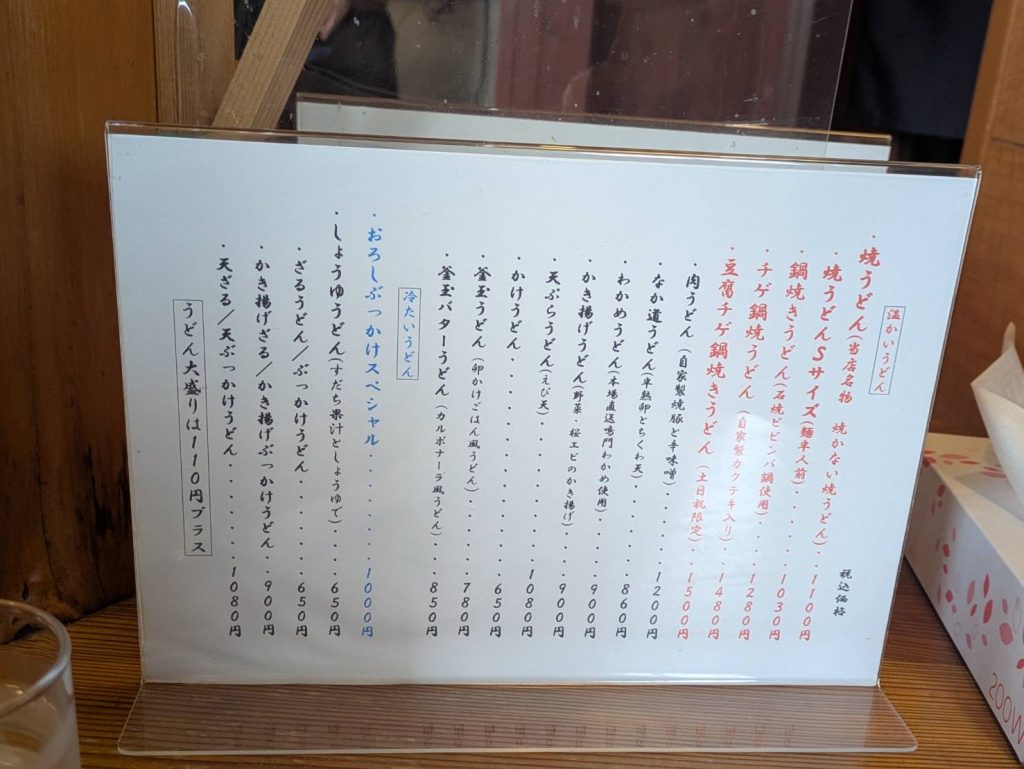 温かいうどん
税込価格
・焼うどん(当店名物 焼かない焼うどん)・・1100円
・焼うどんSサイズ(麺半人前)・・・1030円
・鍋焼きうどん(石焼ビビンバ鍋使用)・・・1280円
・チゲ鍋焼うどん(自家製カクテキ入り)・・1480円
・豆腐チゲ鍋焼きうどん(土日祝限定)・・1500円
・肉うどん(自家製焼豚と辛味噌)・・・・1200円
・なか道うどん(半熟卵とちくわ天)・・・・860円
・わかめうどん(本場直送鳴門わかめ使用)・・・900円
・かき揚げうどん(野菜・桜エビのかき揚げ)・・・900円
・天ぷらうどん(えび天)・・・・・・・・1080円
・かけうどん・・・・・・・・・・・650円
・釜玉うどん(卵かけごはん風うどん)・・・・780円
・釜玉バターうどん(カルボナーラ風うどん)・・850円
冷たいうどん
・おろしぶっかけスペシャル・・・・・・1000円
・しょうゆうどん(すだち果汁としょうゆで)・・・650円
・ざるうどん/ぶっかけうどん・・・・・650円
・かき揚げざる/かき揚げぶっかけうどん・・900円
・天ざる/天ぶっかけうどん・・・・・・1080円
うどん大盛りは110円プラス
200W